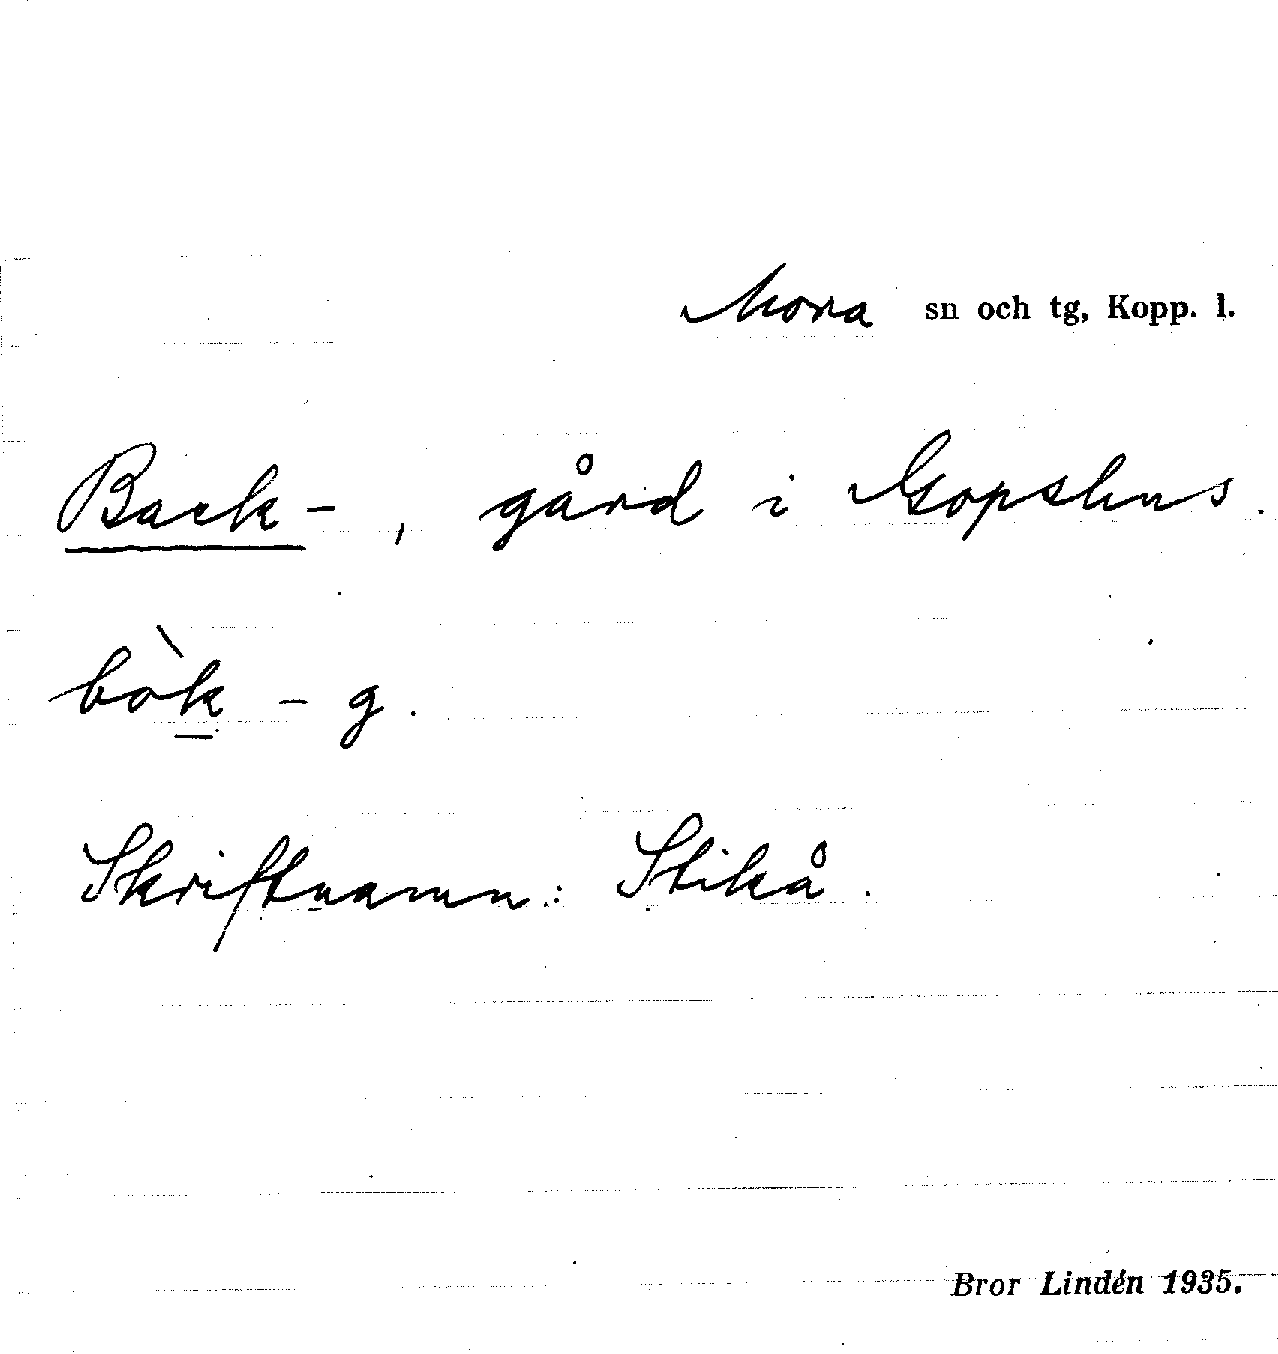 Mora sn och tg, Kopp. l.
Back-, gård i Gopshus.
bòk - g.
Skriftnamn: Stikå.
Bror Lindén 1935.